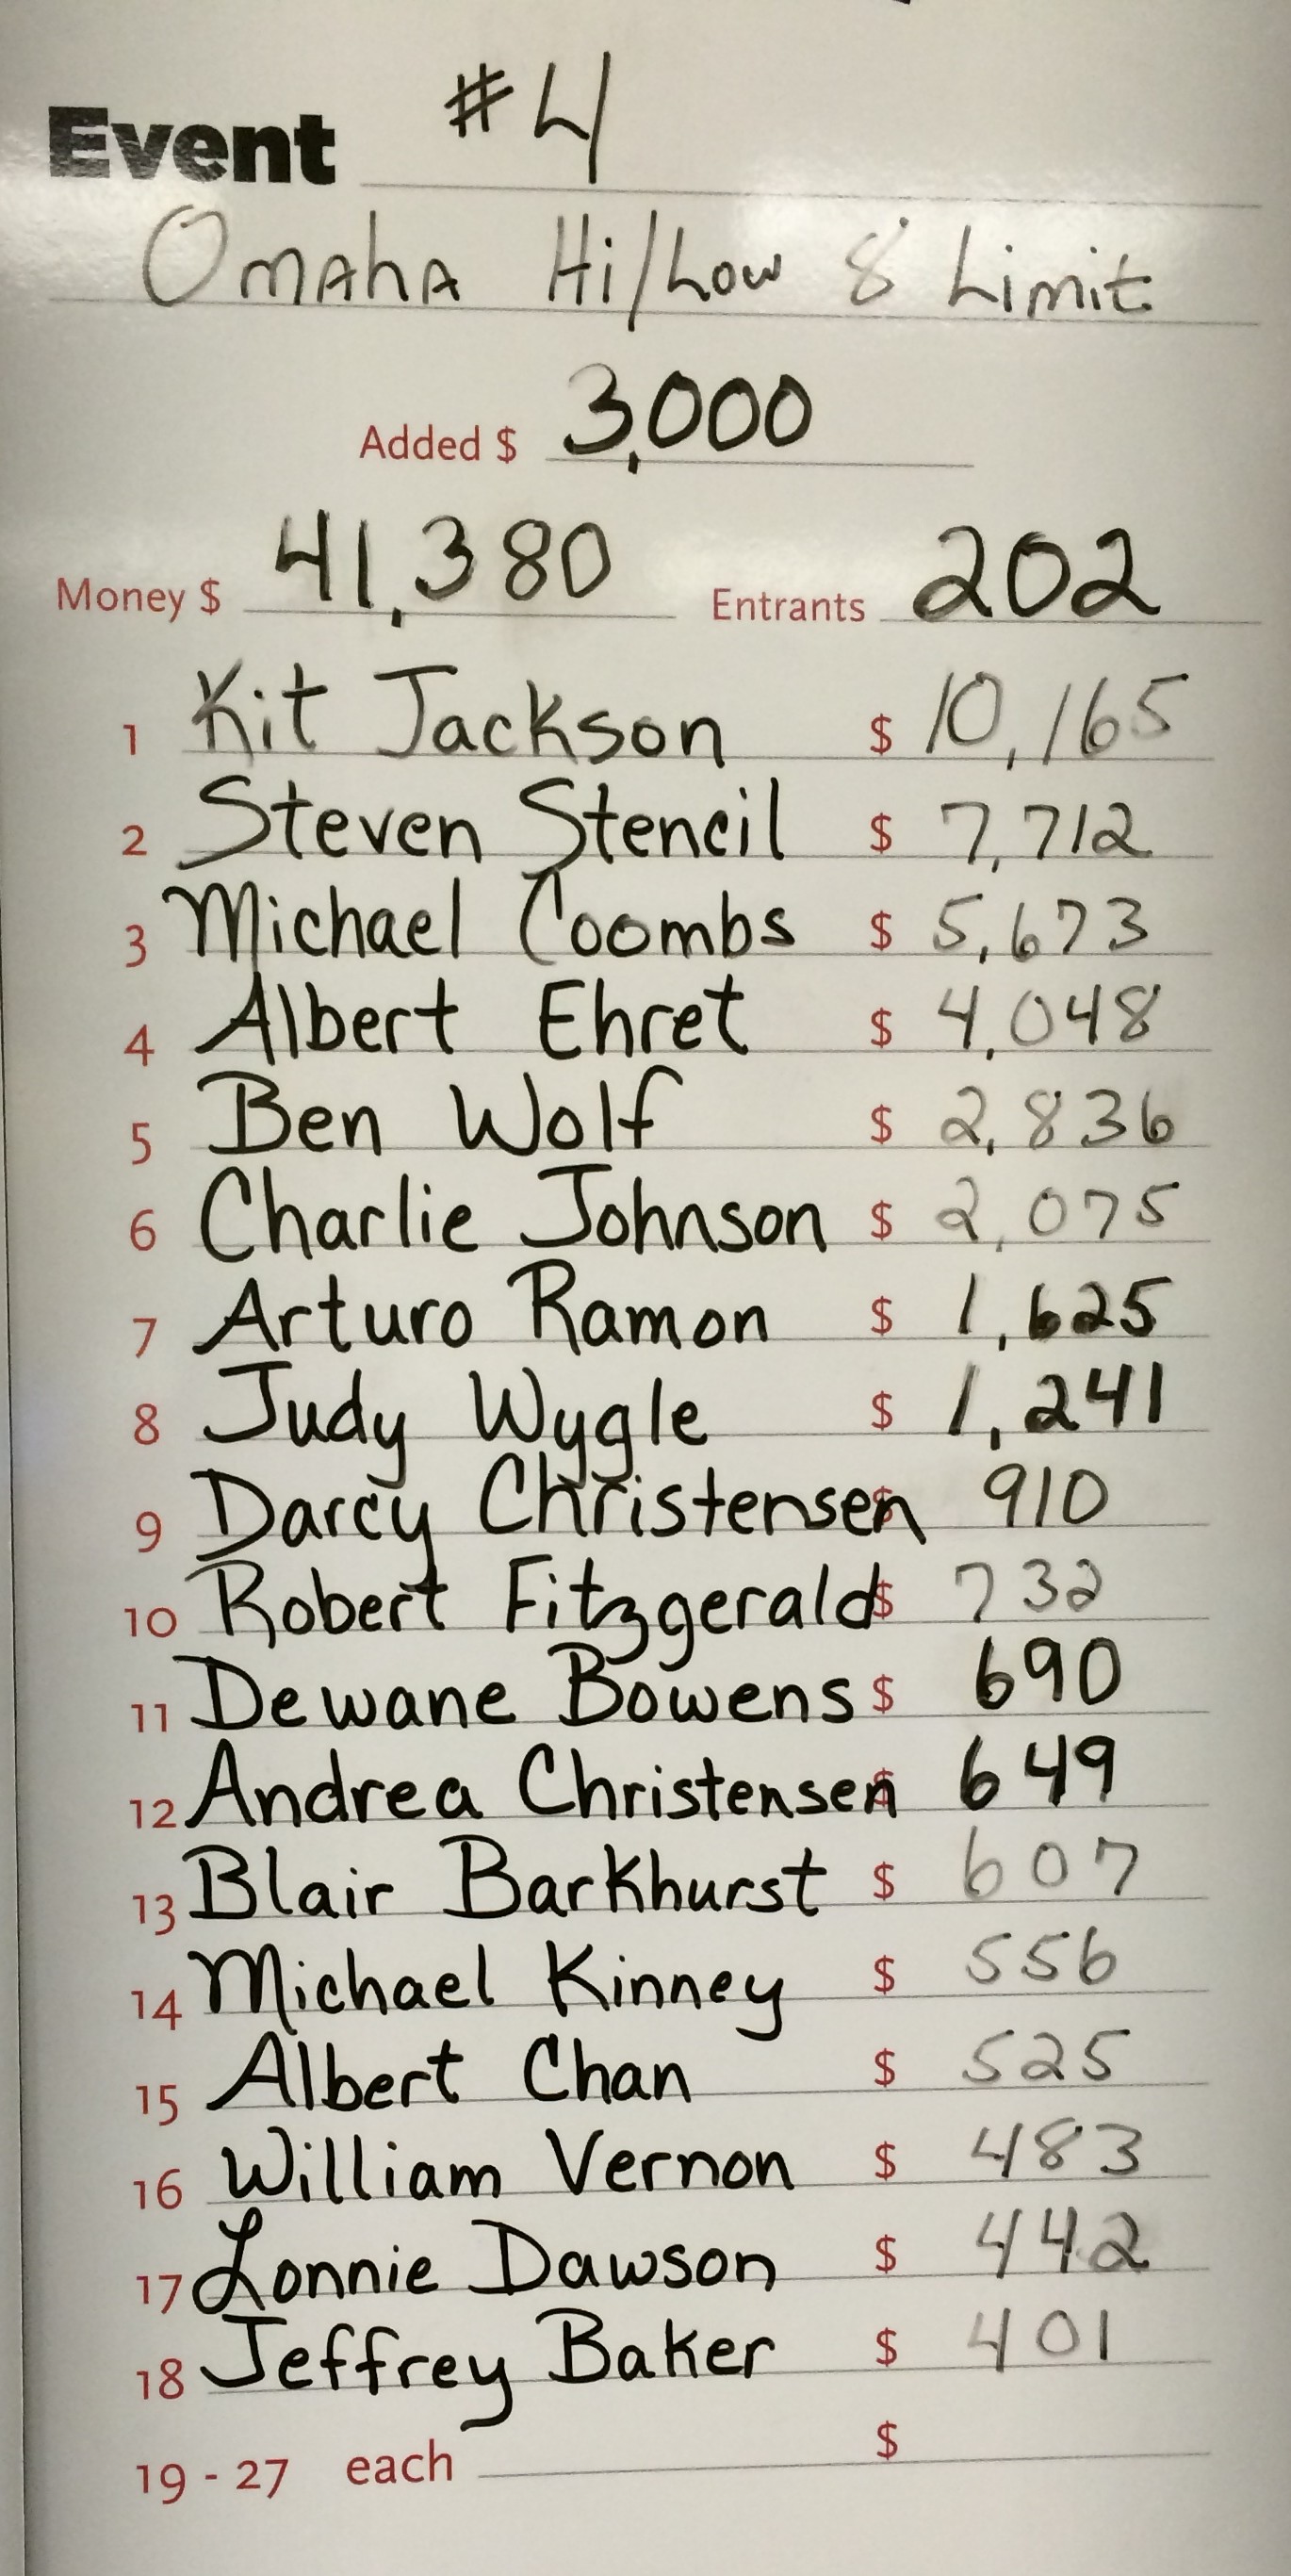 Event #4
Omaha Hi/Low 8 Limit
Added $ 3,000
Money $ 41,380 Entrants 202
1 Kit Jackson $ 10,165
2 Steven Stencil $ 7,712
3 Michael Coombs $ 5,673
4 Albert Ehret $ 4,048
5 Ben Wolf $ 2,836
6 Charlie Johnson $ 2,075
7 Arturo Ramon $ 1,625
8 Judy Wygle $ 1,241
9 Darcy Christensen $ 910
10 Robert Fitzgerald $ 732
11 Dewane Bowens $ 690
12 Andrea Christensen $ 649
13 Blair Barkhurst $ 607
14 Michael Kinney $ 556
15 Albert Chan $ 525
16 William Vernon $ 483
17 Lonnie Dawson $ 442
18 Jeffrey Baker $ 401
19 - 27 each $